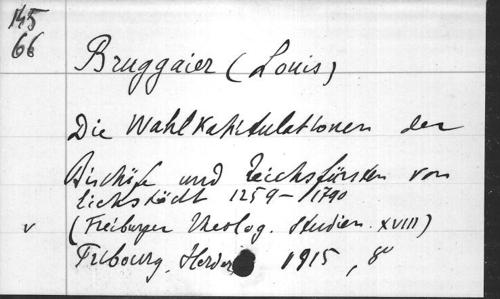 145
66
Bruggaier (Louis)
Die Wahlkapitulationen der
Bischöfe und Reichsfürsten von
Eichstädt 1259-1790
v (Freiburger Theolog. Studien. XVIII)
Fribourg, Herder 1915, 8°